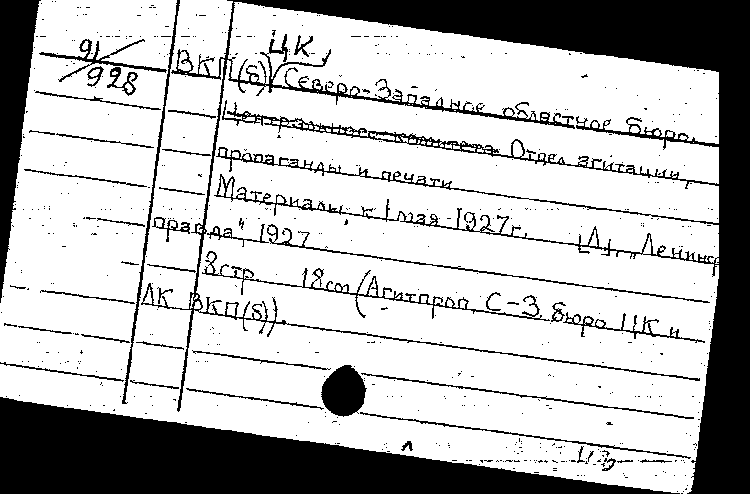 91/928
ЦК
ВКП(б) Северо-Западное областное бюро.
Центрального комитета Отдел агитации,
пропаганды и печати
Материалы к 1 мая 1927г. [Л], „Ленингр
правда", 1927
8стр 18см (Агитпроп С-З бюро ЦК и
ЛК ВКП(б)).